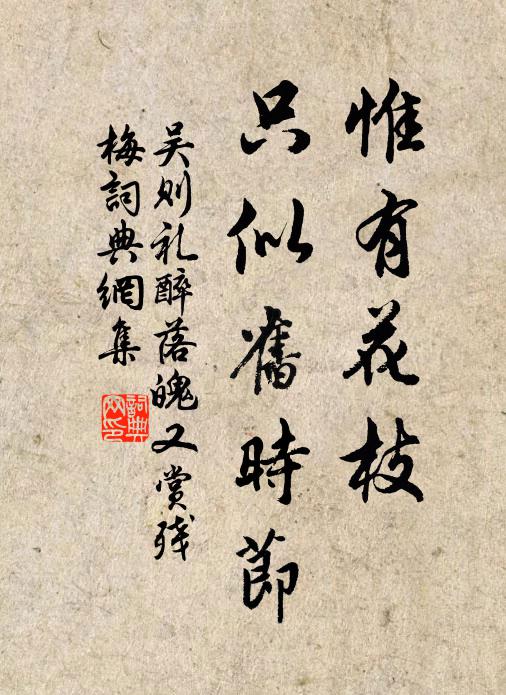 惟有花枝
只似舊時節
吴则礼醉落魄又赏残
梅詞典網集
詞典网印